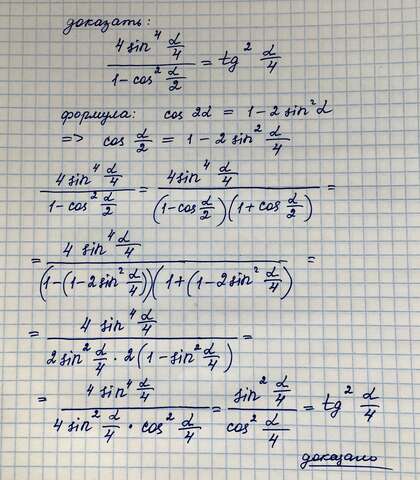 доказать:
4 sin⁴ α/4 / 1 - cos² α/2 = tg² α/4
формула: cos 2α = 1 - 2 sin² α
=> cos α/2 = 1 - 2 sin² α/4
4 sin⁴ α/4 / 1 - cos² α/2 = 4 sin⁴ α/4 / (1 - cos α/2)(1 + cos α/2) =
= 4 sin⁴ α/4 / (1 - (1 - 2 sin² α/4))(1 + (1 - 2 sin² α/4) =
= 4 sin⁴ α/4 / 2 sin² α/4 · 2(1 - sin² α/4) =
= 4 sin⁴ α/4 / 4 sin² α/4 · cos² α/4 = sin² α/4 / cos² α/4 = tg² α/4
доказано